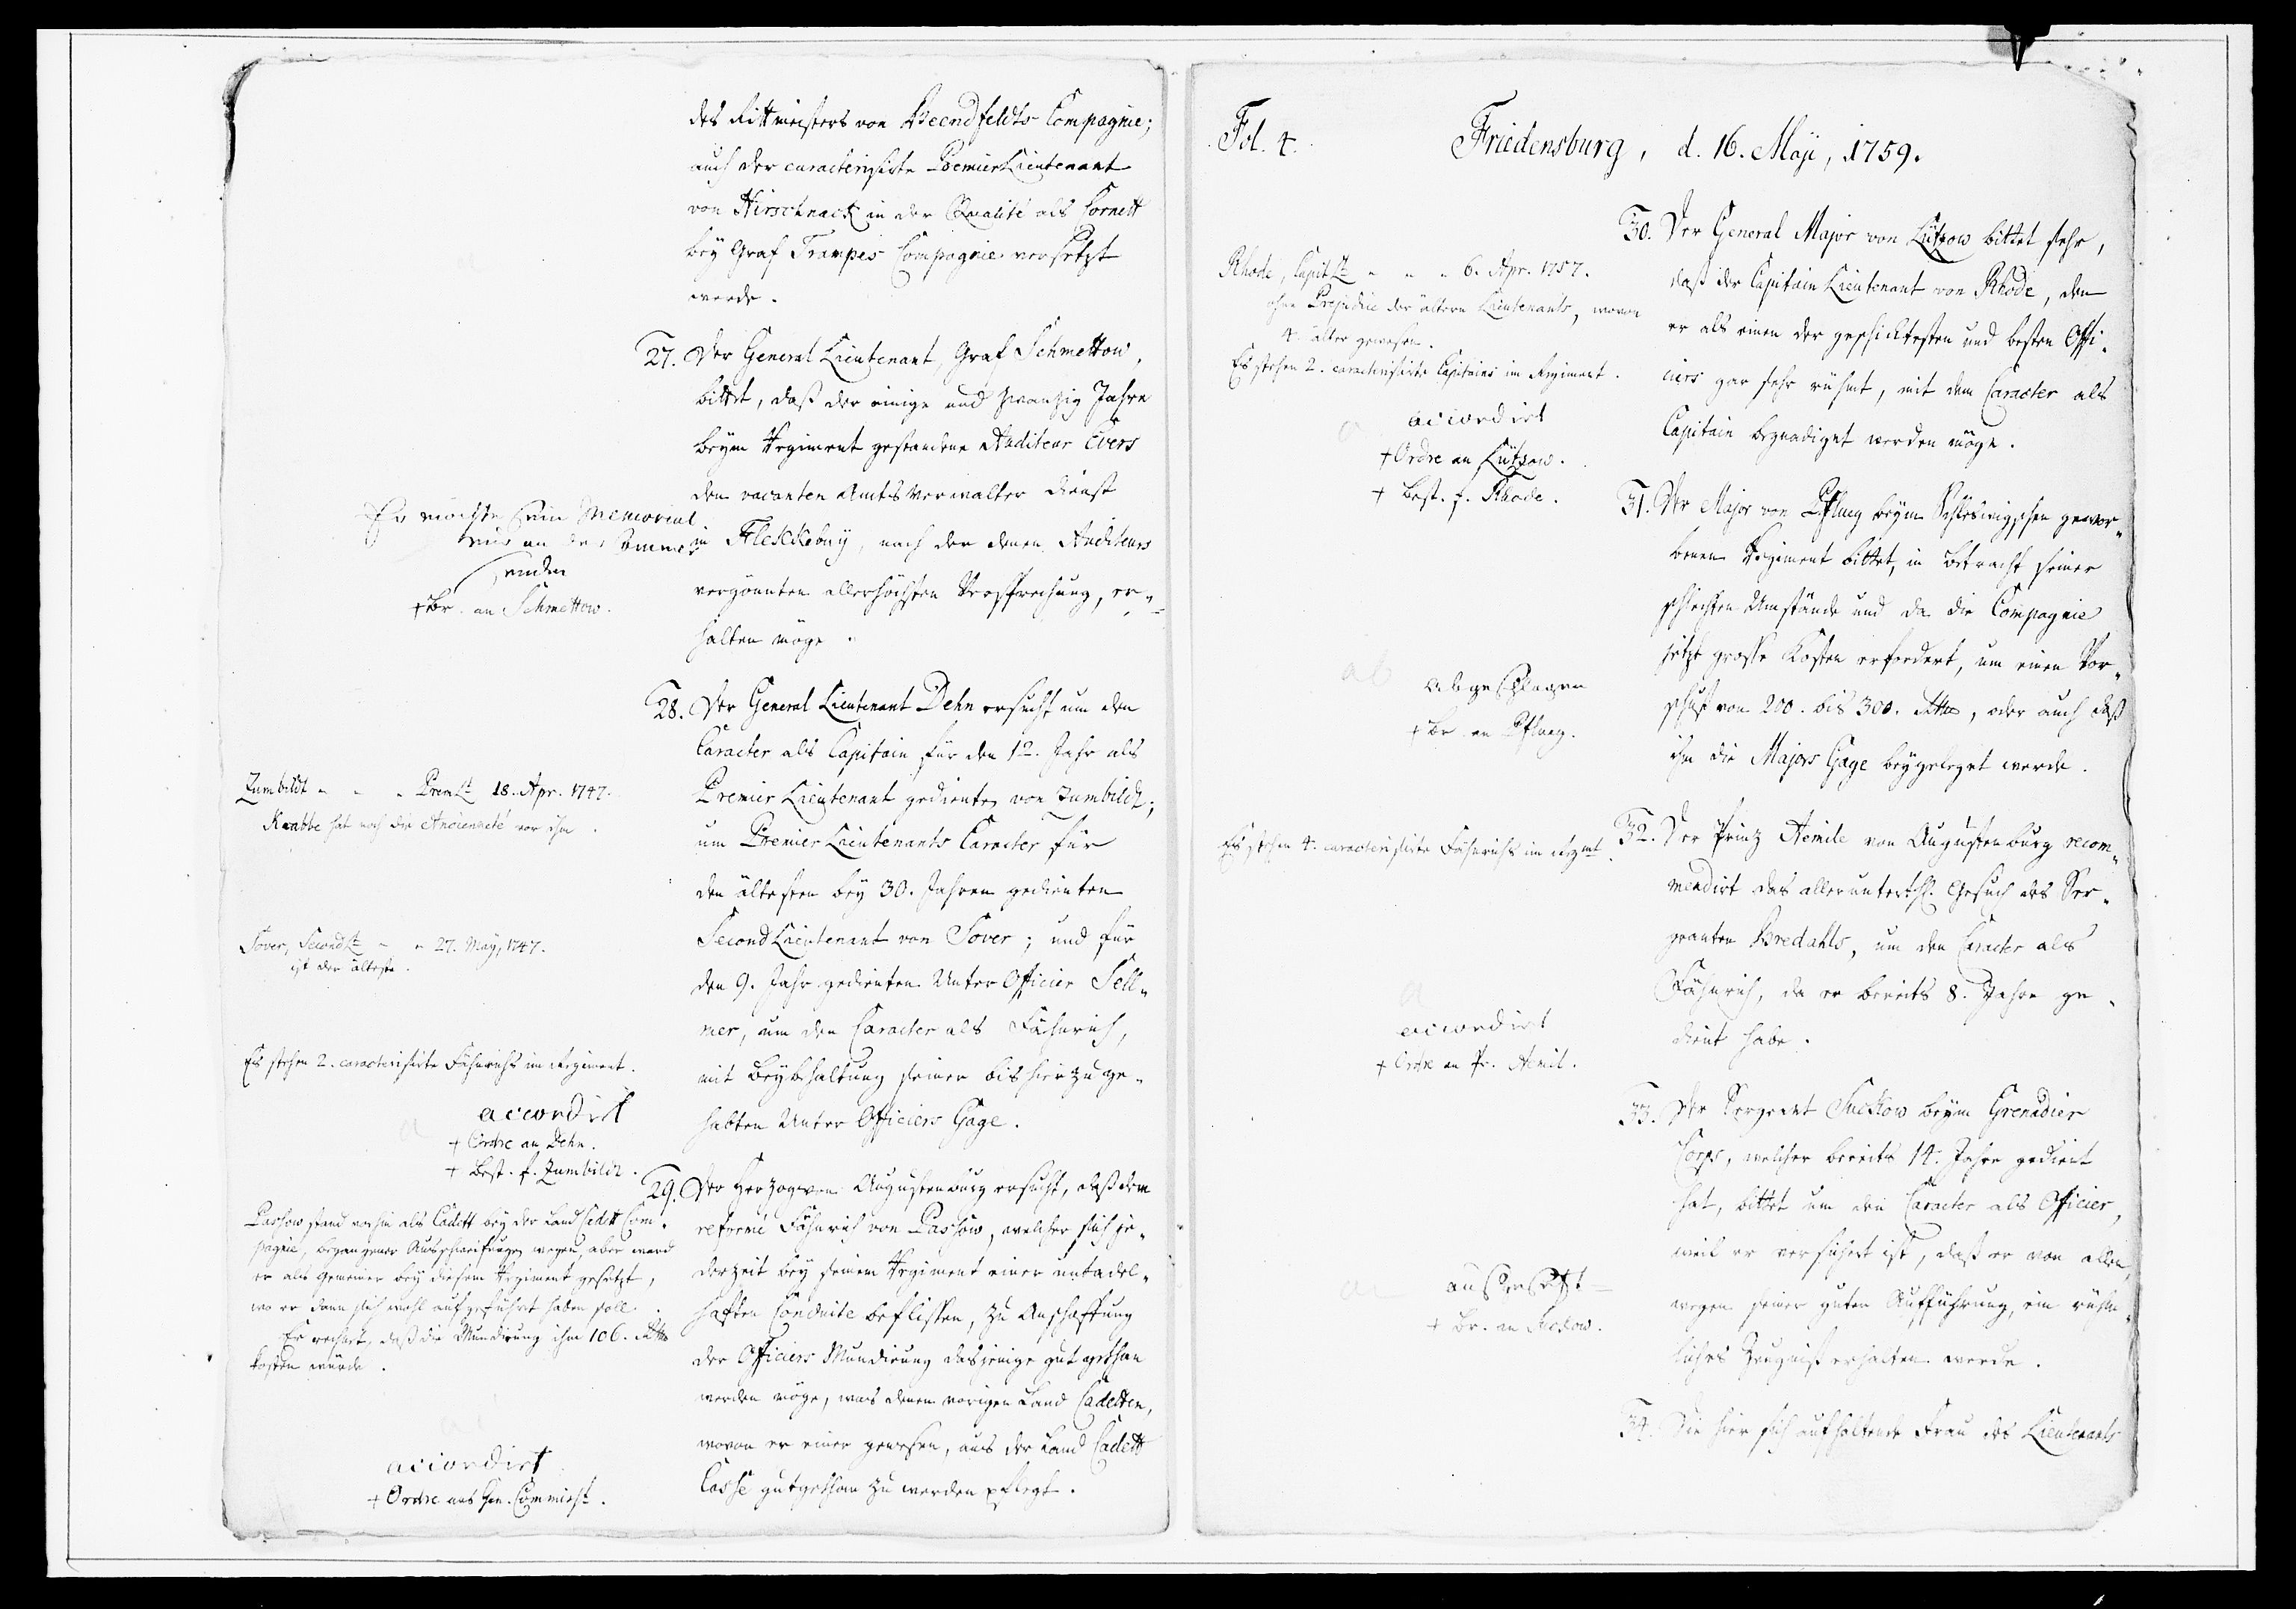 des Rittmeisters von Beendfeldts Compagnie;
auch der caracterisirte PremierLieutenant
von Hirschnack in der Qualité als Cornett
bey Graf Trampes Compagnie versetzt
werde.
27. Der General Lieutenant, Graf Schmettow,
bittet, daß der einige und zwanzig Jahre
beym Regiment gestandene Auditeur Evers
den vacanten Amtsverwalter Dienst
in Fleskebuy, nach der denen Auditeurs
vergönnten allerhöchsten Versprechung, er-
halten möge.
Er möchte sein Memorial
nur an die
senden
+ Br. an Schmettow.
28. Der General Lieutenant Dehn ersucht um den
Caracter als Capitain für den 12. Jahr als
Premier Lieutenant gedienten von Zumbildt;
um Premier Lieutenants Caracter für
den ältesten bey 30. Jahren gedienten
Second Lieutenant von Sover; und für
den 9. Jahr gedienten Unter Officier Sell-
ner, um den Caracter als Fähnrich,
mit Beybehaltung seiner bis hierzu ge-
habten Unter Officiers Gage.
Zumbildt - - - Prem Lt 18. Apr. 1747.
Krabbe hat noch die Ancienneté vor ihm.
Sover, Second Lt - - 27. May, 1747.
ist der älteste.
Es stehen 2. caracterisirte Fähnrichs im Regiment.
a
accordirt
+ Ordre an Dehn.
+ Best. f. Zumbildt.
29. Der Herzog von Augustenburg ersucht, daß dem
reformé Fähnrich von Passow, welcher sich je-
derzeit bey seinem Regiment einer untadel-
haften Conduite beflissen, zu Anschaffung
der Officiers Mundirung dasjenige gut gethan
werden möge, was denen vorigen Land Cadetten,
wovon er einer gewesen, aus der Land Cadett
Casse gutgethan zu werden pflegt.
Passow stand vorhin als Cadett bey der Land Cadett Com-
pagnie, begangener Ausschweifungen wegen, aber ward
er als Gemeiner bey diesem Regiment gesetzt,
wo er dann sich wohl aufgeführt haben soll.
Er rechnet, daß die Mundirung ihm 106. Rthlr
kosten würde.
accordirt
+ Ordre ans Gen. Commisst.
Fol. 4.
Friedensburg, d. 16. Maji, 1759.
30. Der General Major von Lützow bittet sehr,
daß der Capitain Lieutenant von Rhode, den
er als einen der geschicktesten und besten Offi-
ciers gar sehr rühmt, mit dem Caracter als
Capitain begnadiget werden möge.
Rhode, Capit Lt - - - 6. Apr. 1757.
ohne Prejudice der ältern Lieutenants, wovon
4. älter gewesen.
Es stehen 2. caracterisirte Capitains im Regiment.
a
accordirt
+ Ordre an Lützow.
+ Best. f. Rhode.
31. Der Major von Pflueg beym Schleswigschen gewor-
benen Regiment bittet, in Betracht seiner
schlechten Umstände und da die Compagnie
jetzt grosse Kosten erfordert, um einen Vor-
schuß von 200. bis 300. Rthlr, oder auch daß
ihm die Majors Gage beygeleget werde.
ab
abgeschlagen
+ Br. an Pflueg.
32. Der Prinz Aemile von Augustenburg recom-
mendirt das allerunterth. Gesuch des Ser-
geanten Bredahls, um den Caracter als
Fähnrich, da er bereits 8. Jahre ge-
dient habe.
Es stehen 4. caracterisirte Fähnrichs im Regmt.
a
accordirt
+ Ordre an Pr. Aemil.
33. Der Sergeant Suckow beym Grenadier
Corps, welcher bereits 14. Jahre gedient
hat, bittet um den Caracter als Officier,
weil er versichert ist, daß er von allen,
wegen seiner guten Aufführung, ein rühm-
liches Zeugniß erhalten werde.
ausgesetzt
+ Br. an Suckow.
34. Die hier sich aufhaltende Frau des Lieutenants